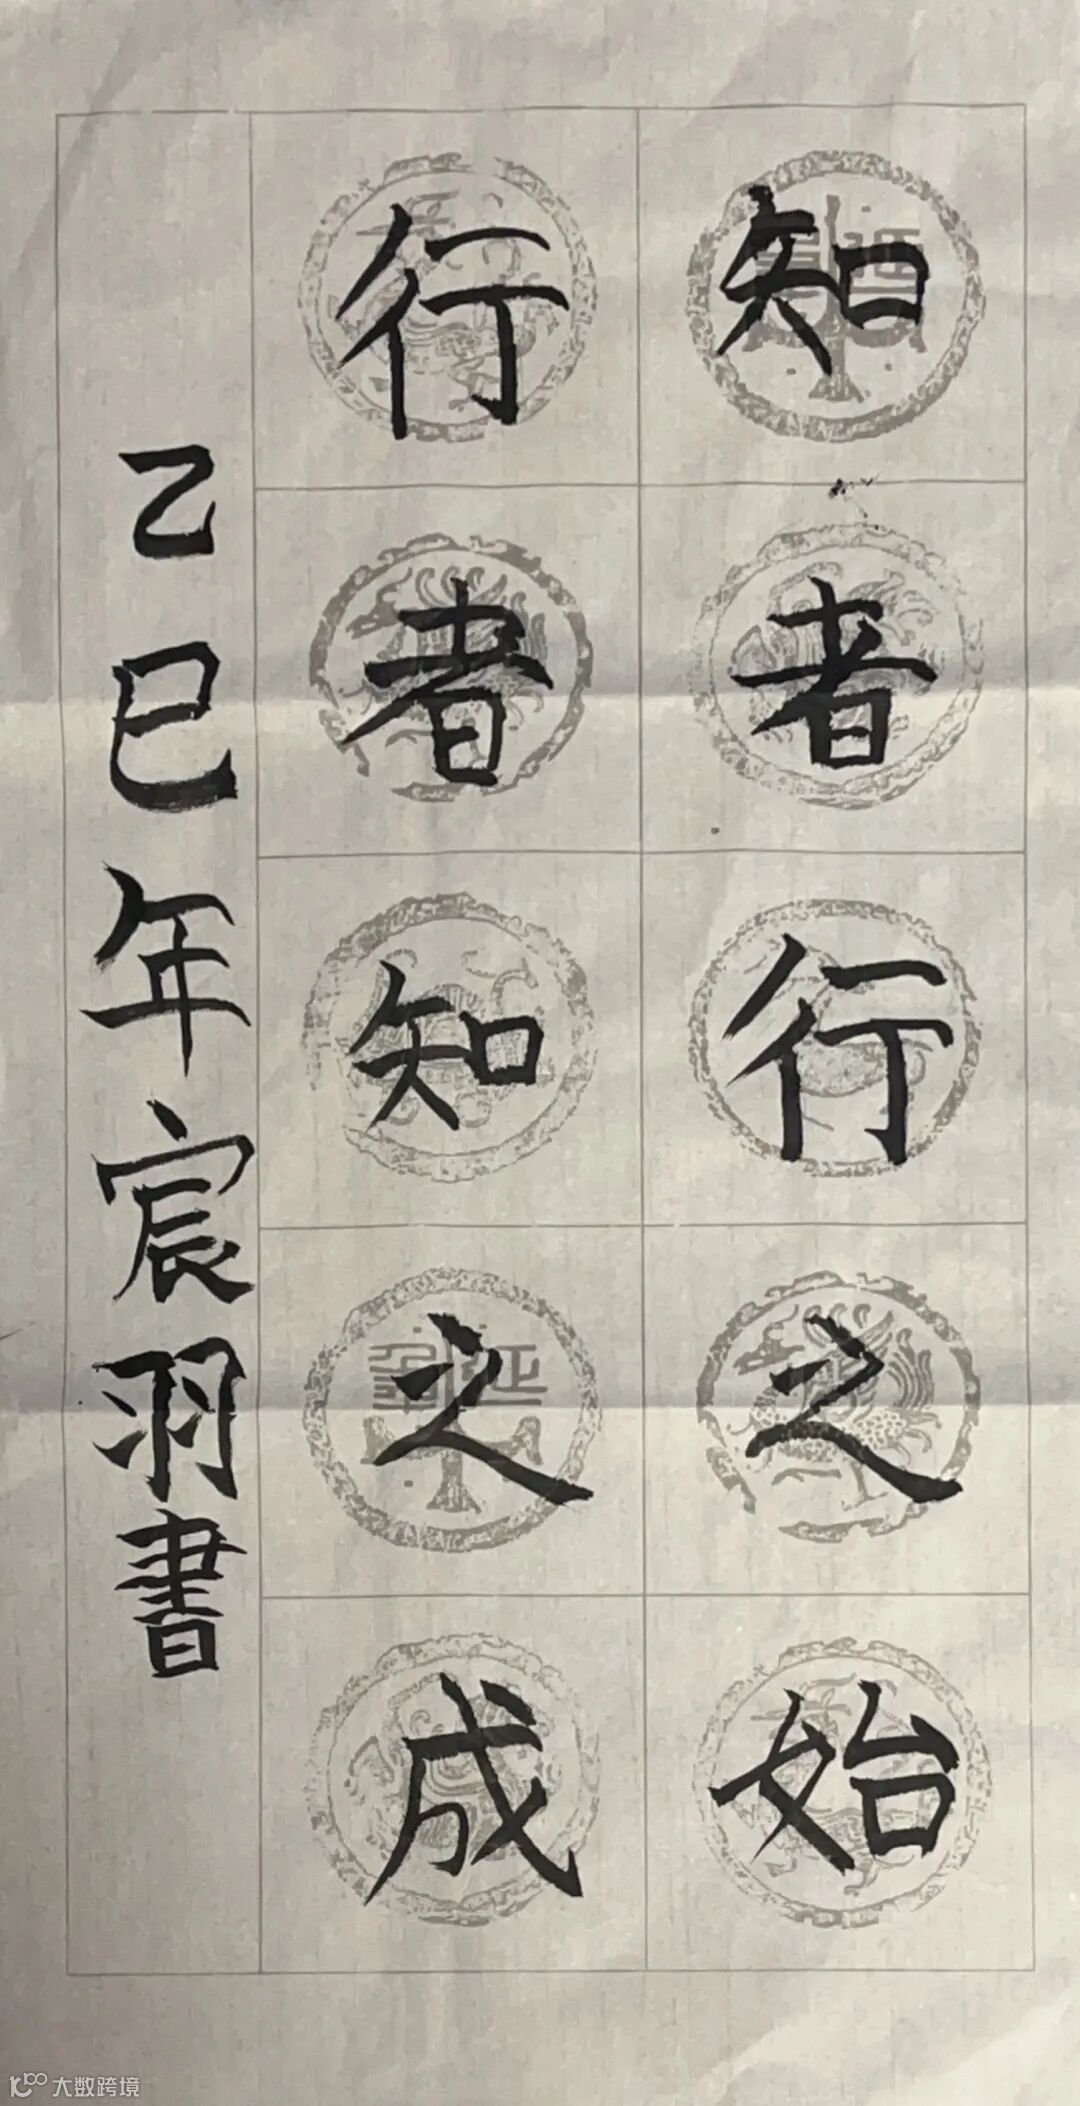 知者行之始
行者知之成
乙巳年宸羽書
大数跨境